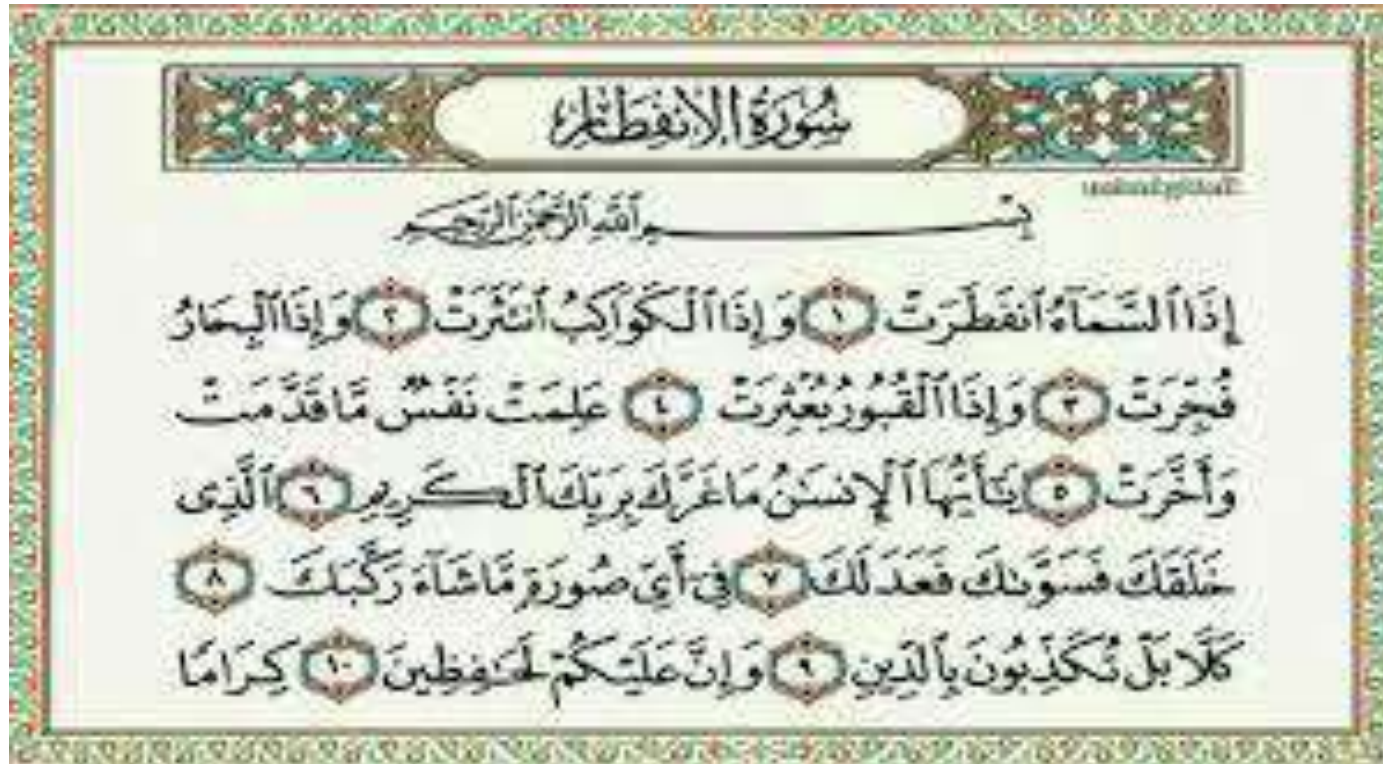 سُورَةُ الِانفِطَارِ
بِسْمِ ٱللَّهِ ٱلرَّحْمَٰنِ ٱلرَّحِيمِ
إِذَا ٱلسَّمَآءُ ٱنفَطَرَتْ ١ وَإِذَا ٱلْكَوَاكِبُ ٱنتَثَرَتْ ٢ وَإِذَا ٱلْبِحَارُ
فُجِّرَتْ ٣ وَإِذَا ٱلْقُبُورُ بُعْثِرَتْ ٤ عَلِمَتْ نَفْسٌ مَّا قَدَّمَتْ
وَأَخَّرَتْ ٥ يَٰٓأَيُّهَا ٱلْإِنسَٰنُ مَا غَرَّكَ بِرَبِّكَ ٱلْكَرِيمِ ٦ ٱلَّذِى
خَلَقَكَ فَسَوَّىٰكَ فَعَدَلَكَ ٧ فِىٓ أَىِّ صُورَةٍ مَّا شَآءَ رَكَّبَكَ ٨
كَلَّا بَلْ تُكَذِّبُونَ بِٱلدِّينِ ٩ وَإِنَّ عَلَيْكُمْ لَحَٰفِظِينَ ١٠ كِرَامًا